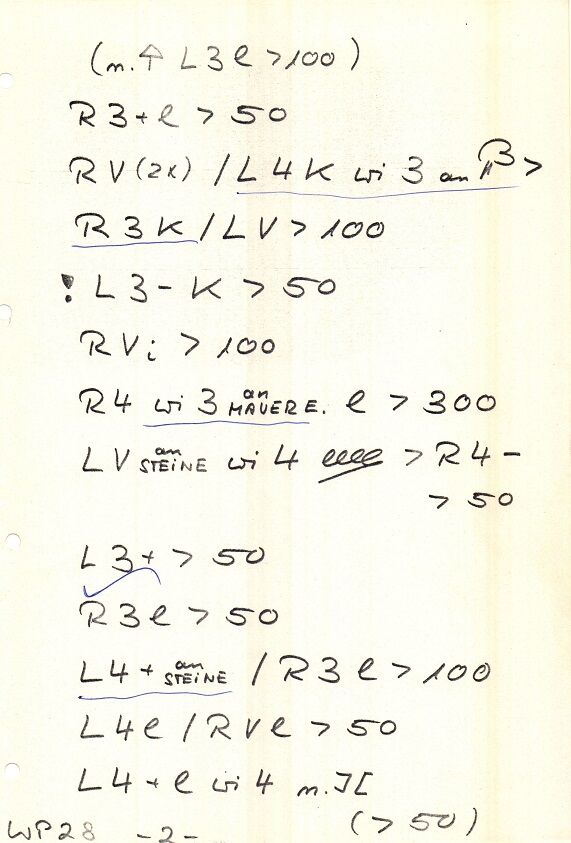 (m. ↑ L3l >100)
R3+l > 50
RV(2x) / L4K wi 3 an B >
R3K / LV > 100
! L3-K > 50
RVi > 100
R4 wi 3 an MAUER E. l > 300
LV an STEINE wi 4 > R4-
> 50
L3+ > 50
R3l > 50
L4+ an STEINE / R3l > 100
L4l / RVl > 50
L4+l wi 4 m. ][
(> 50)
WP28 -2-